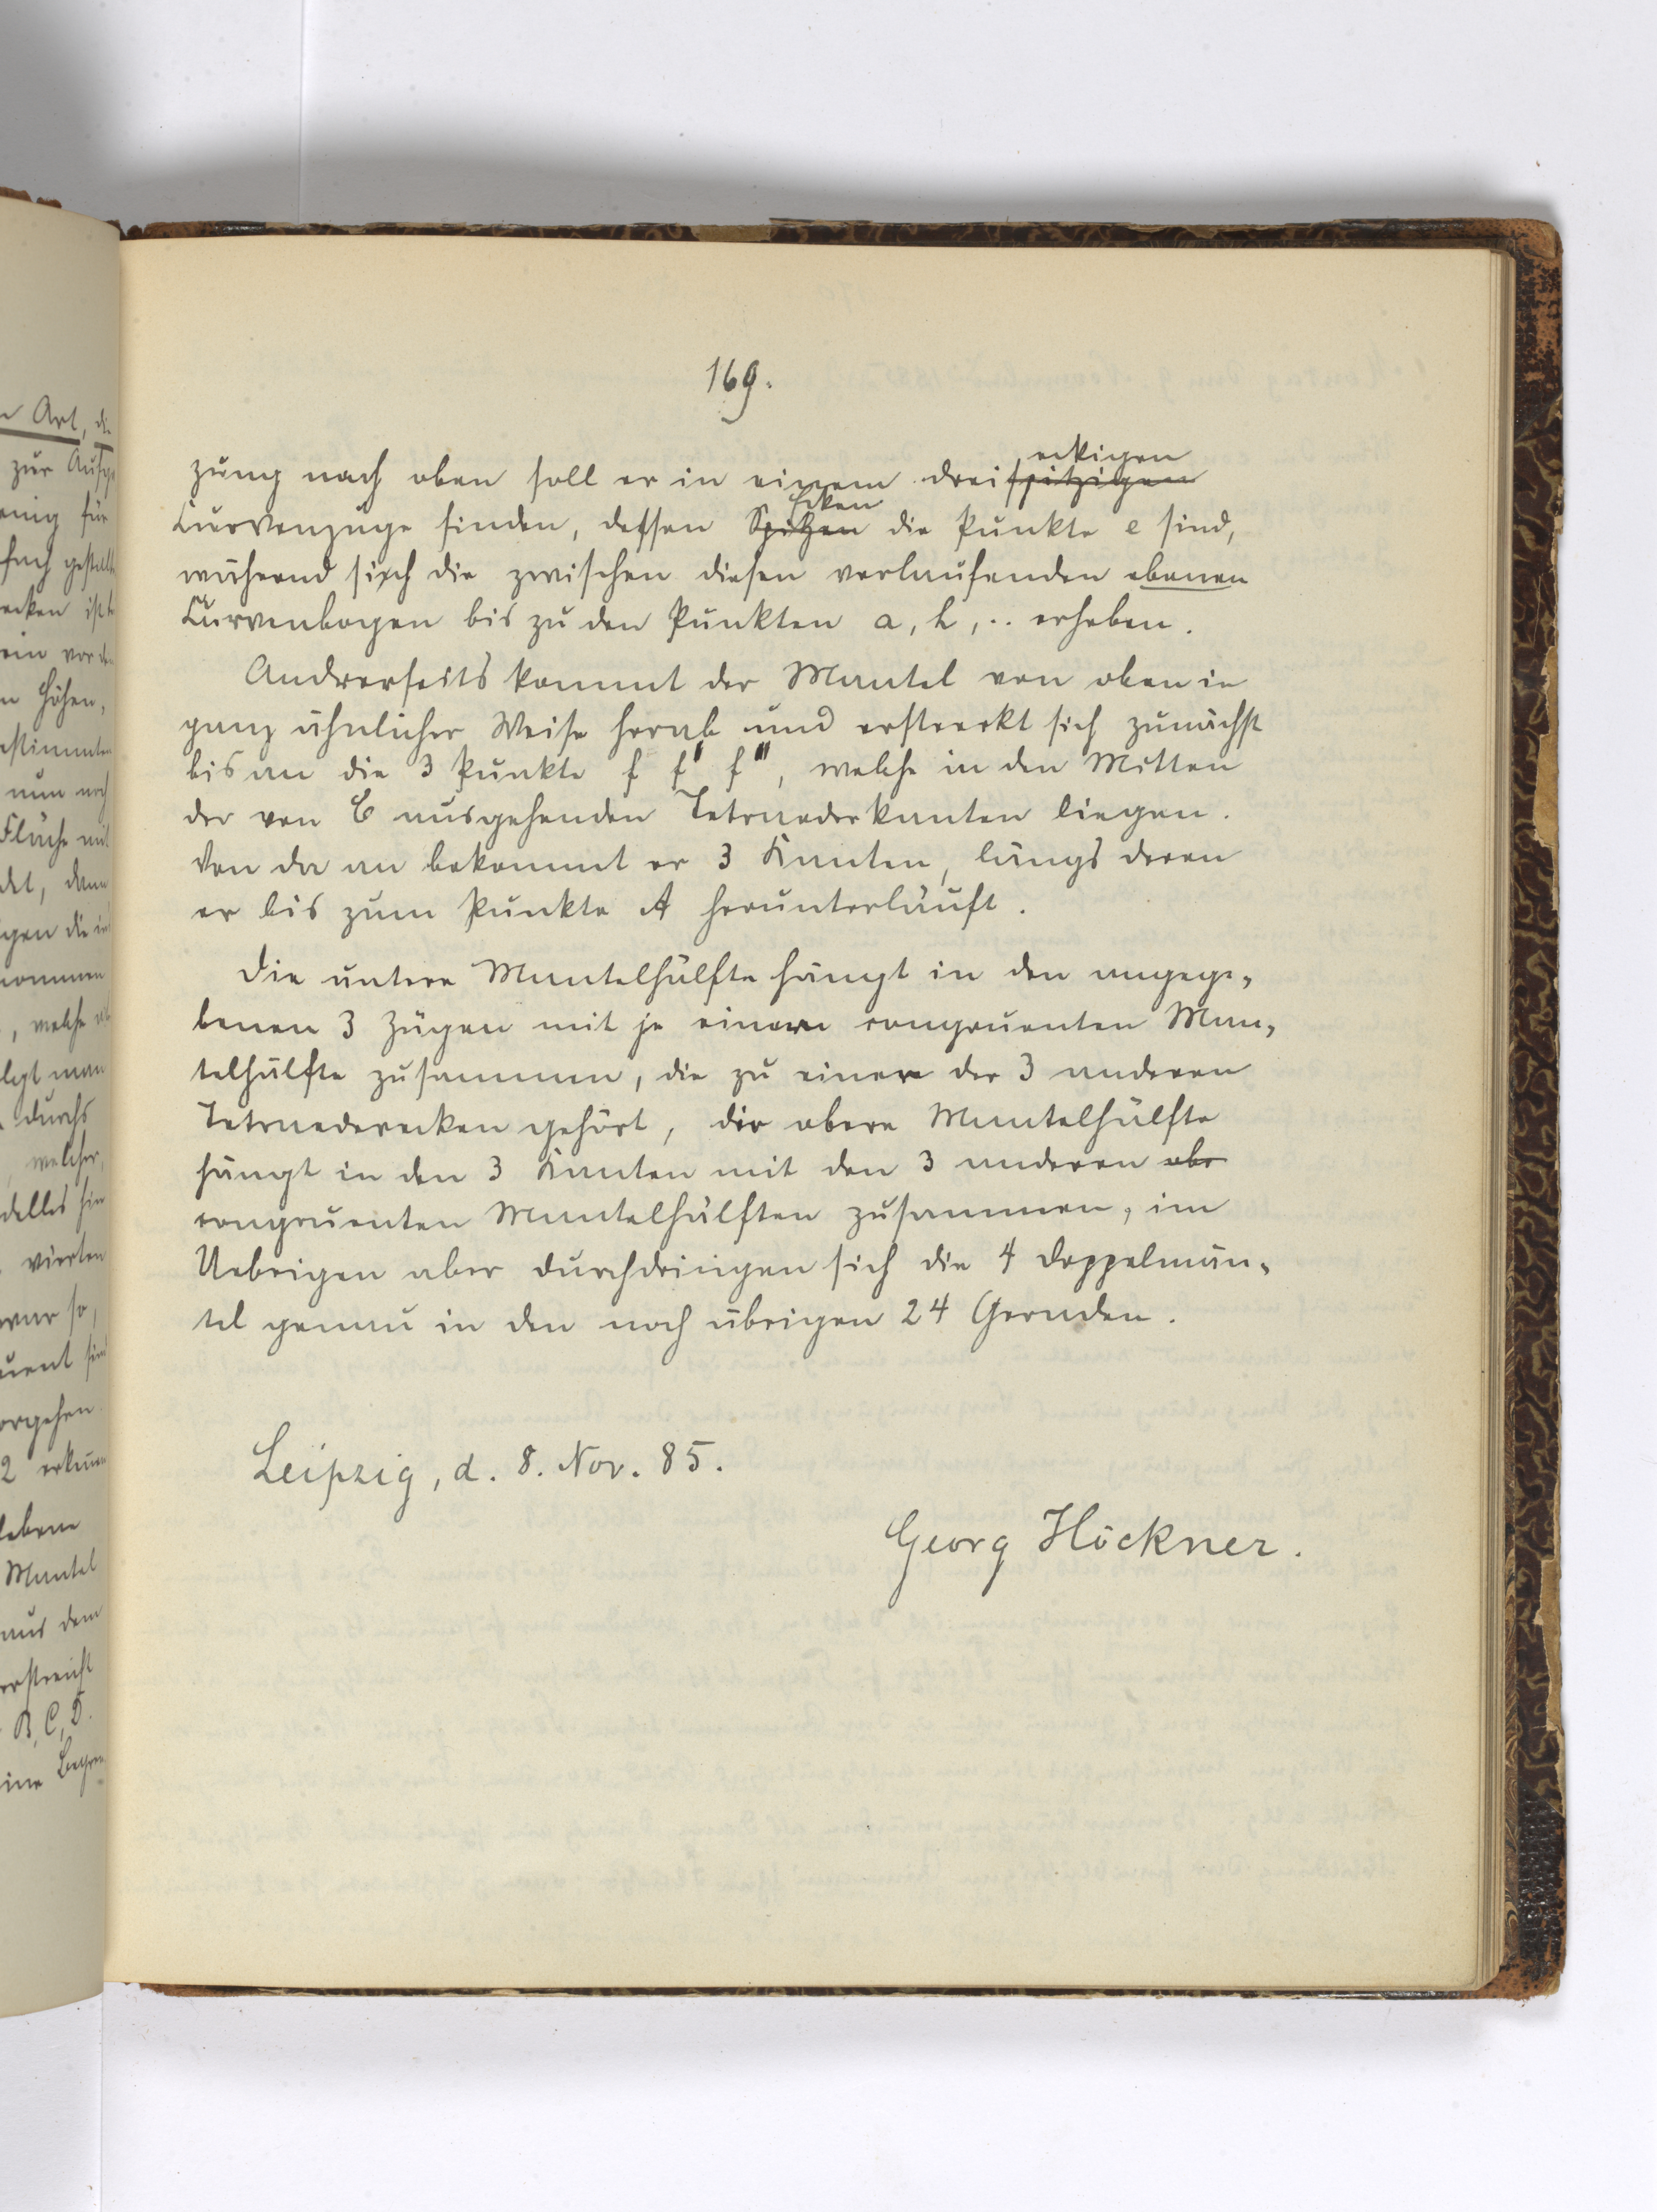 169.
zung nach oben soll er in einem dreispitzigen
eckigen
Curvenzuge finden, dessen Spitzen die Punkte e sind,
Ecken
während sich die zwischen diesen verlaufenden ebenen
Curvenbogen bis zu den Punkten a, b, .. erheben.
Andrerseits kommt der Mantel von oben in
ganz ähnlicher Weise herab und erstreckt sich zunächst
bis an die 3 Punkte f f' f'', welche in den Mitten
der von C ausgehenden Tetraederkanten liegen.
Von da an bekommt er 3 Kanten, längs deren
er bis zum Punkte A herunterläuft.
Die untere Mantelhälfte hängt in den angege-
benen 3 Zügen mit je einer congruenten Man-
telhälfte zusammen, die zu einer der 3 anderen
Tetraederecken gehört, die obere Mantelhälfte
hängt in den 3 Kanten mit den 3 anderen obe
congruenten Mantelhälften zusammen, im
Uebrigen aber durchdringen sich die 4 Doppelmän-
tel genau in den noch übrigen 24 Geraden.
Leipzig, d. 8. Nov. 85.
Georg Höckner.
Art, die
zur
für
fach
ein vor
Höhen,
nun noch
Fläche mit
gen die
welche
legt man
durchs
welcher
vierten
so,
2
Mantel
aus dem
B, C, D.